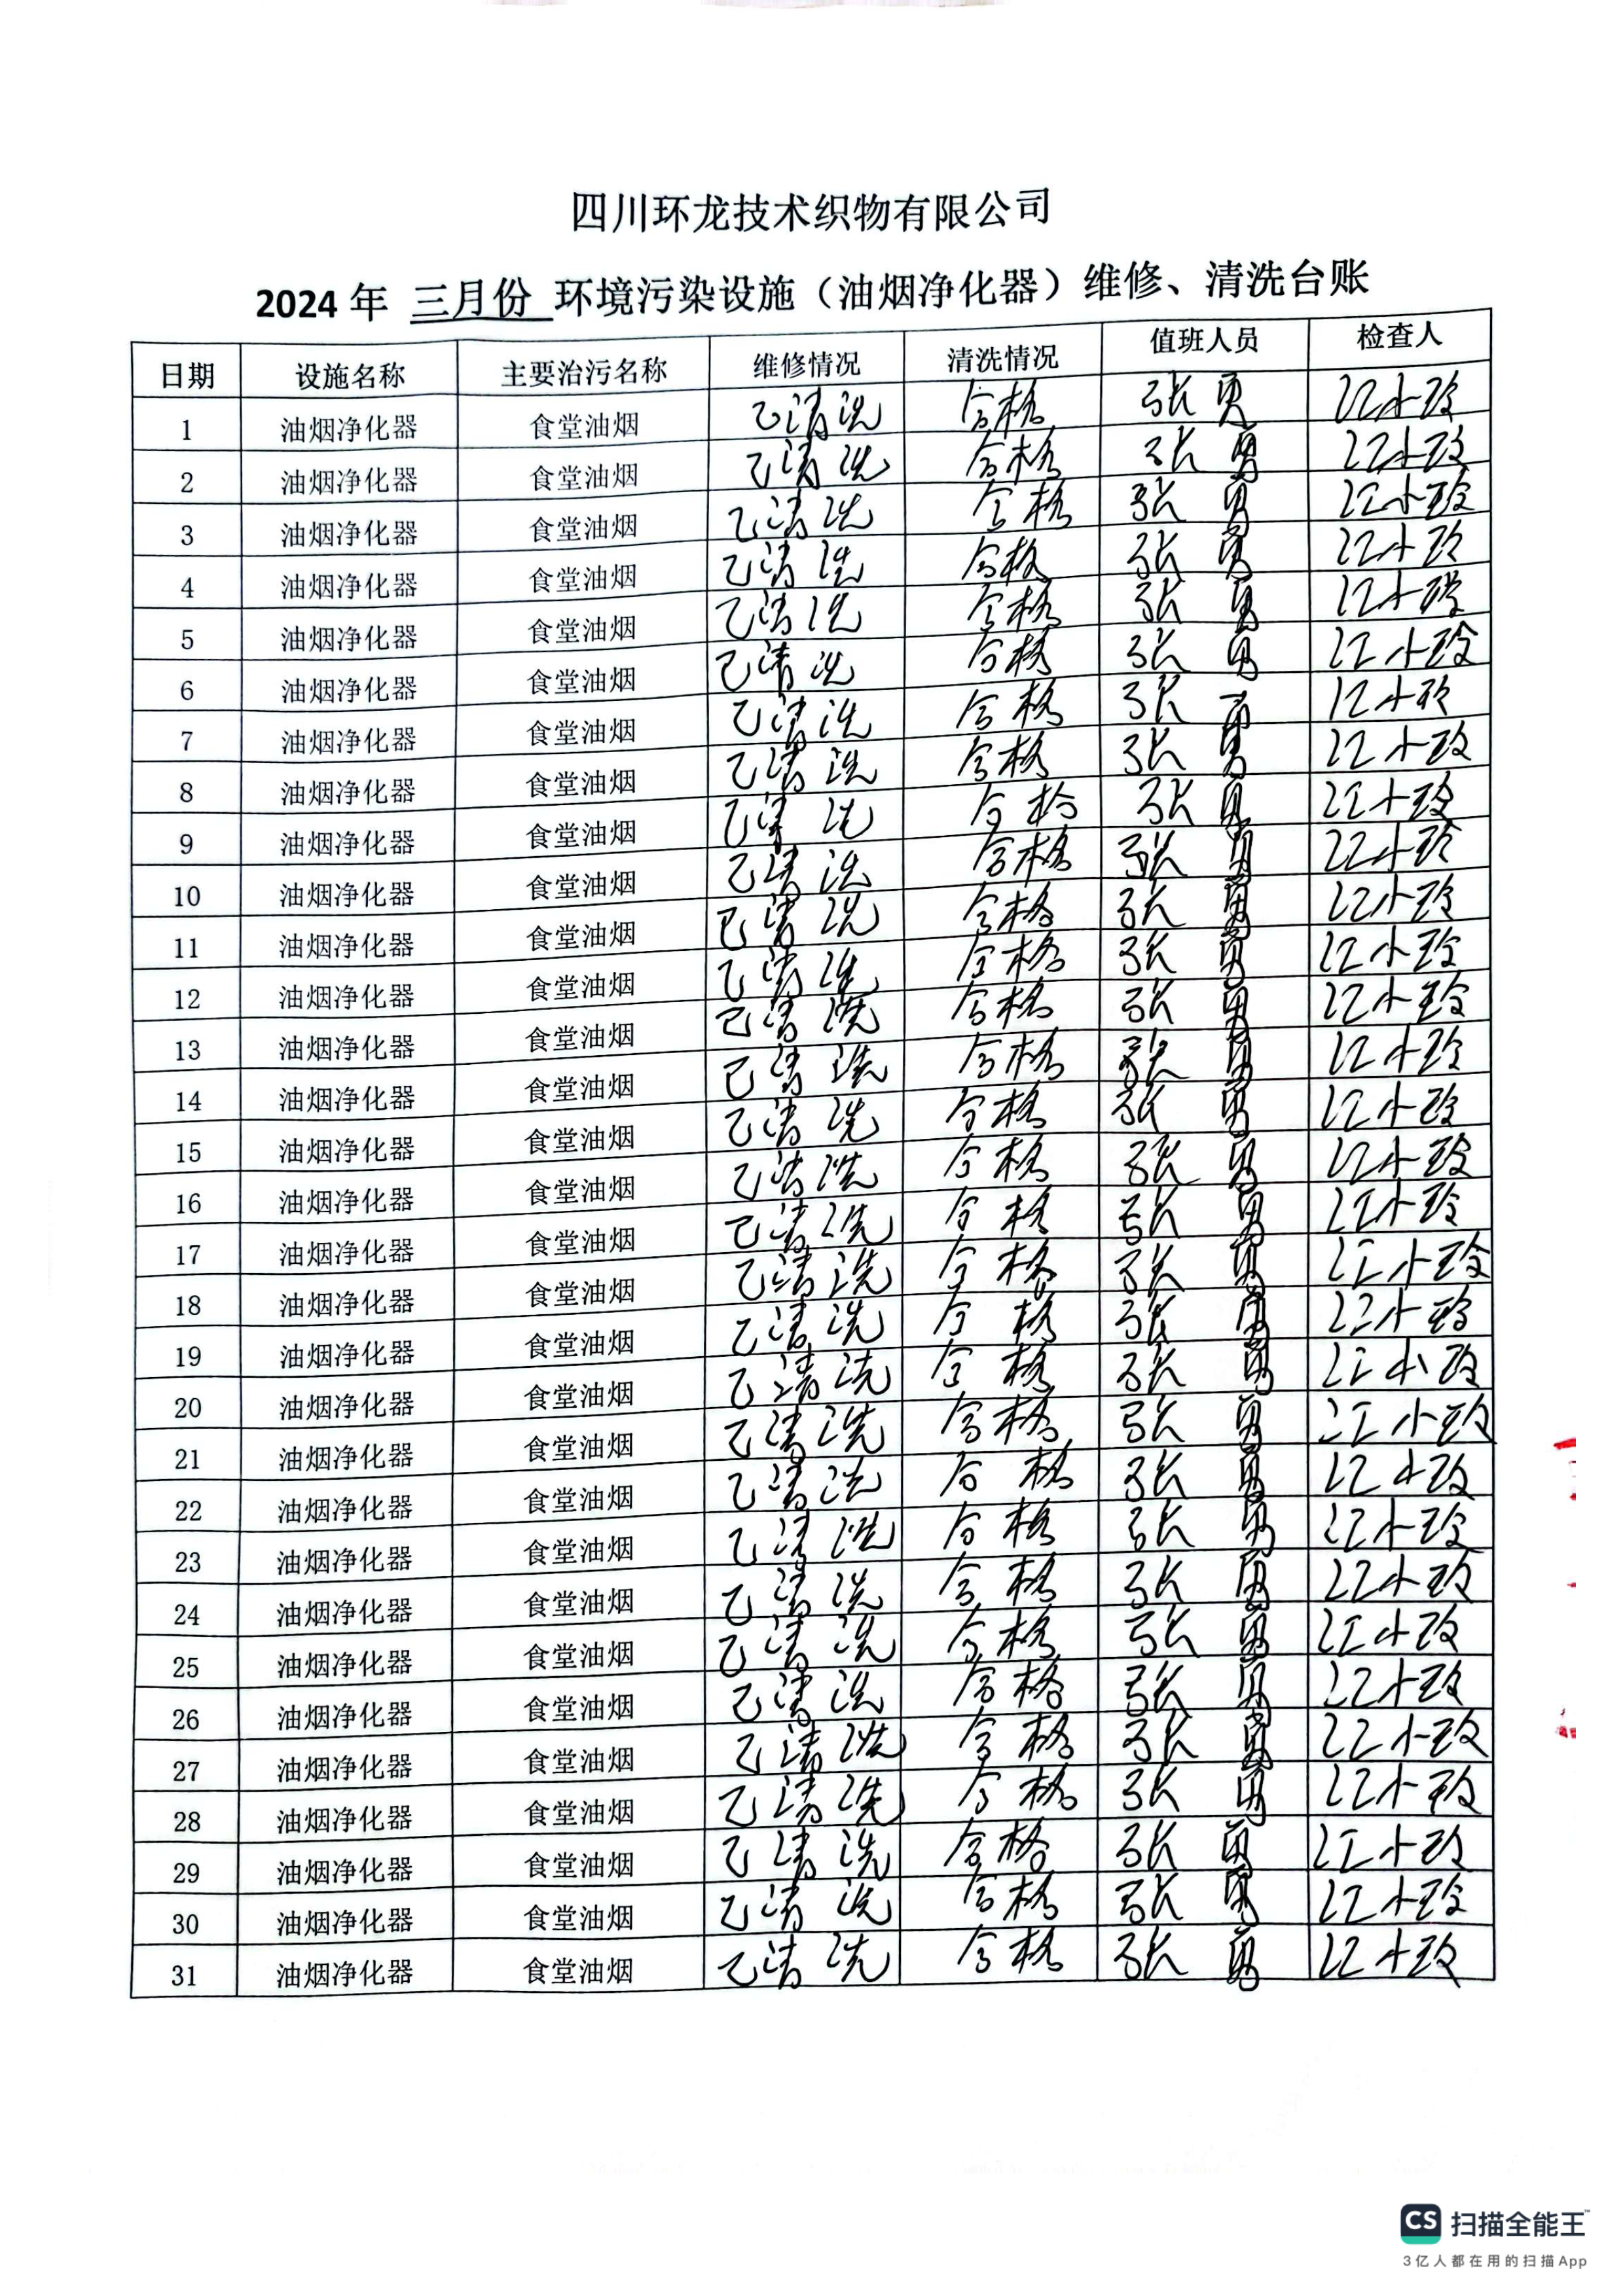 四川环龙技术织物有限公司
2024 年 三月份 环境污染设施（油烟净化器）维修、清洗台账
日期 设施名称 主要治污名称 维修情况 清洗情况 值班人员 检查人
1 油烟净化器 食堂油烟 已清洗 合格 张勇 江小玲
2 油烟净化器 食堂油烟 已清洗 合格 张勇 江小玲
3 油烟净化器 食堂油烟 已清洗 合格 张勇 江小玲
4 油烟净化器 食堂油烟 已清洗 合格 张勇 江小玲
5 油烟净化器 食堂油烟 已清洗 合格 张勇 江小玲
6 油烟净化器 食堂油烟 已清洗 合格 张勇 江小玲
7 油烟净化器 食堂油烟 已清洗 合格 张勇 江小玲
8 油烟净化器 食堂油烟 已清洗 合格 张勇 江小玲
9 油烟净化器 食堂油烟 已清洗 合格 张勇 江小玲
10 油烟净化器 食堂油烟 已清洗 合格 张勇 江小玲
11 油烟净化器 食堂油烟 已清洗 合格 张勇 江小玲
12 油烟净化器 食堂油烟 已清洗 合格 张勇 江小玲
13 油烟净化器 食堂油烟 已清洗 合格 张勇 江小玲
14 油烟净化器 食堂油烟 已清洗 合格 张勇 江小玲
15 油烟净化器 食堂油烟 已清洗 合格 张勇 江小玲
16 油烟净化器 食堂油烟 已清洗 合格 张勇 江小玲
17 油烟净化器 食堂油烟 已清洗 合格 张勇 江小玲
18 油烟净化器 食堂油烟 已清洗 合格 张勇 江小玲
19 油烟净化器 食堂油烟 已清洗 合格 张勇 江小玲
20 油烟净化器 食堂油烟 已清洗 合格 张勇 江小玲
21 油烟净化器 食堂油烟 已清洗 合格 张勇 江小玲
22 油烟净化器 食堂油烟 已清洗 合格 张勇 江小玲
23 油烟净化器 食堂油烟 已清洗 合格 张勇 江小玲
24 油烟净化器 食堂油烟 已清洗 合格 张勇 江小玲
25 油烟净化器 食堂油烟 已清洗 合格 张勇 江小玲
26 油烟净化器 食堂油烟 已清洗 合格 张勇 江小玲
27 油烟净化器 食堂油烟 已清洗 合格 张勇 江小玲
28 油烟净化器 食堂油烟 已清洗 合格 张勇 江小玲
29 油烟净化器 食堂油烟 已清洗 合格 张勇 江小玲
30 油烟净化器 食堂油烟 已清洗 合格 张勇 江小玲
31 油烟净化器 食堂油烟 已清洗 合格 张勇 江小玲
CS 扫描全能王™
3亿人都在用的扫描App